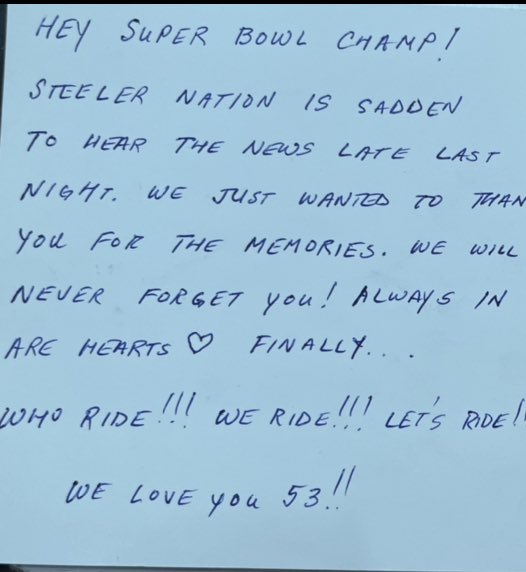 HEY SUPER BOWL CHAMP!
STEELER NATION IS SADDEN
TO HEAR THE NEWS LATE LAST
NIGHT. WE JUST WANTED TO THAN
YOU FOR THE MEMORIES. WE WILL
NEVER FORGET YOU! ALWAYS IN
ARE HEARTS ♡ FINALLY...
WHO RIDE!!! WE RIDE!!! LET'S RIDE!!
WE LOVE YOU 53!!